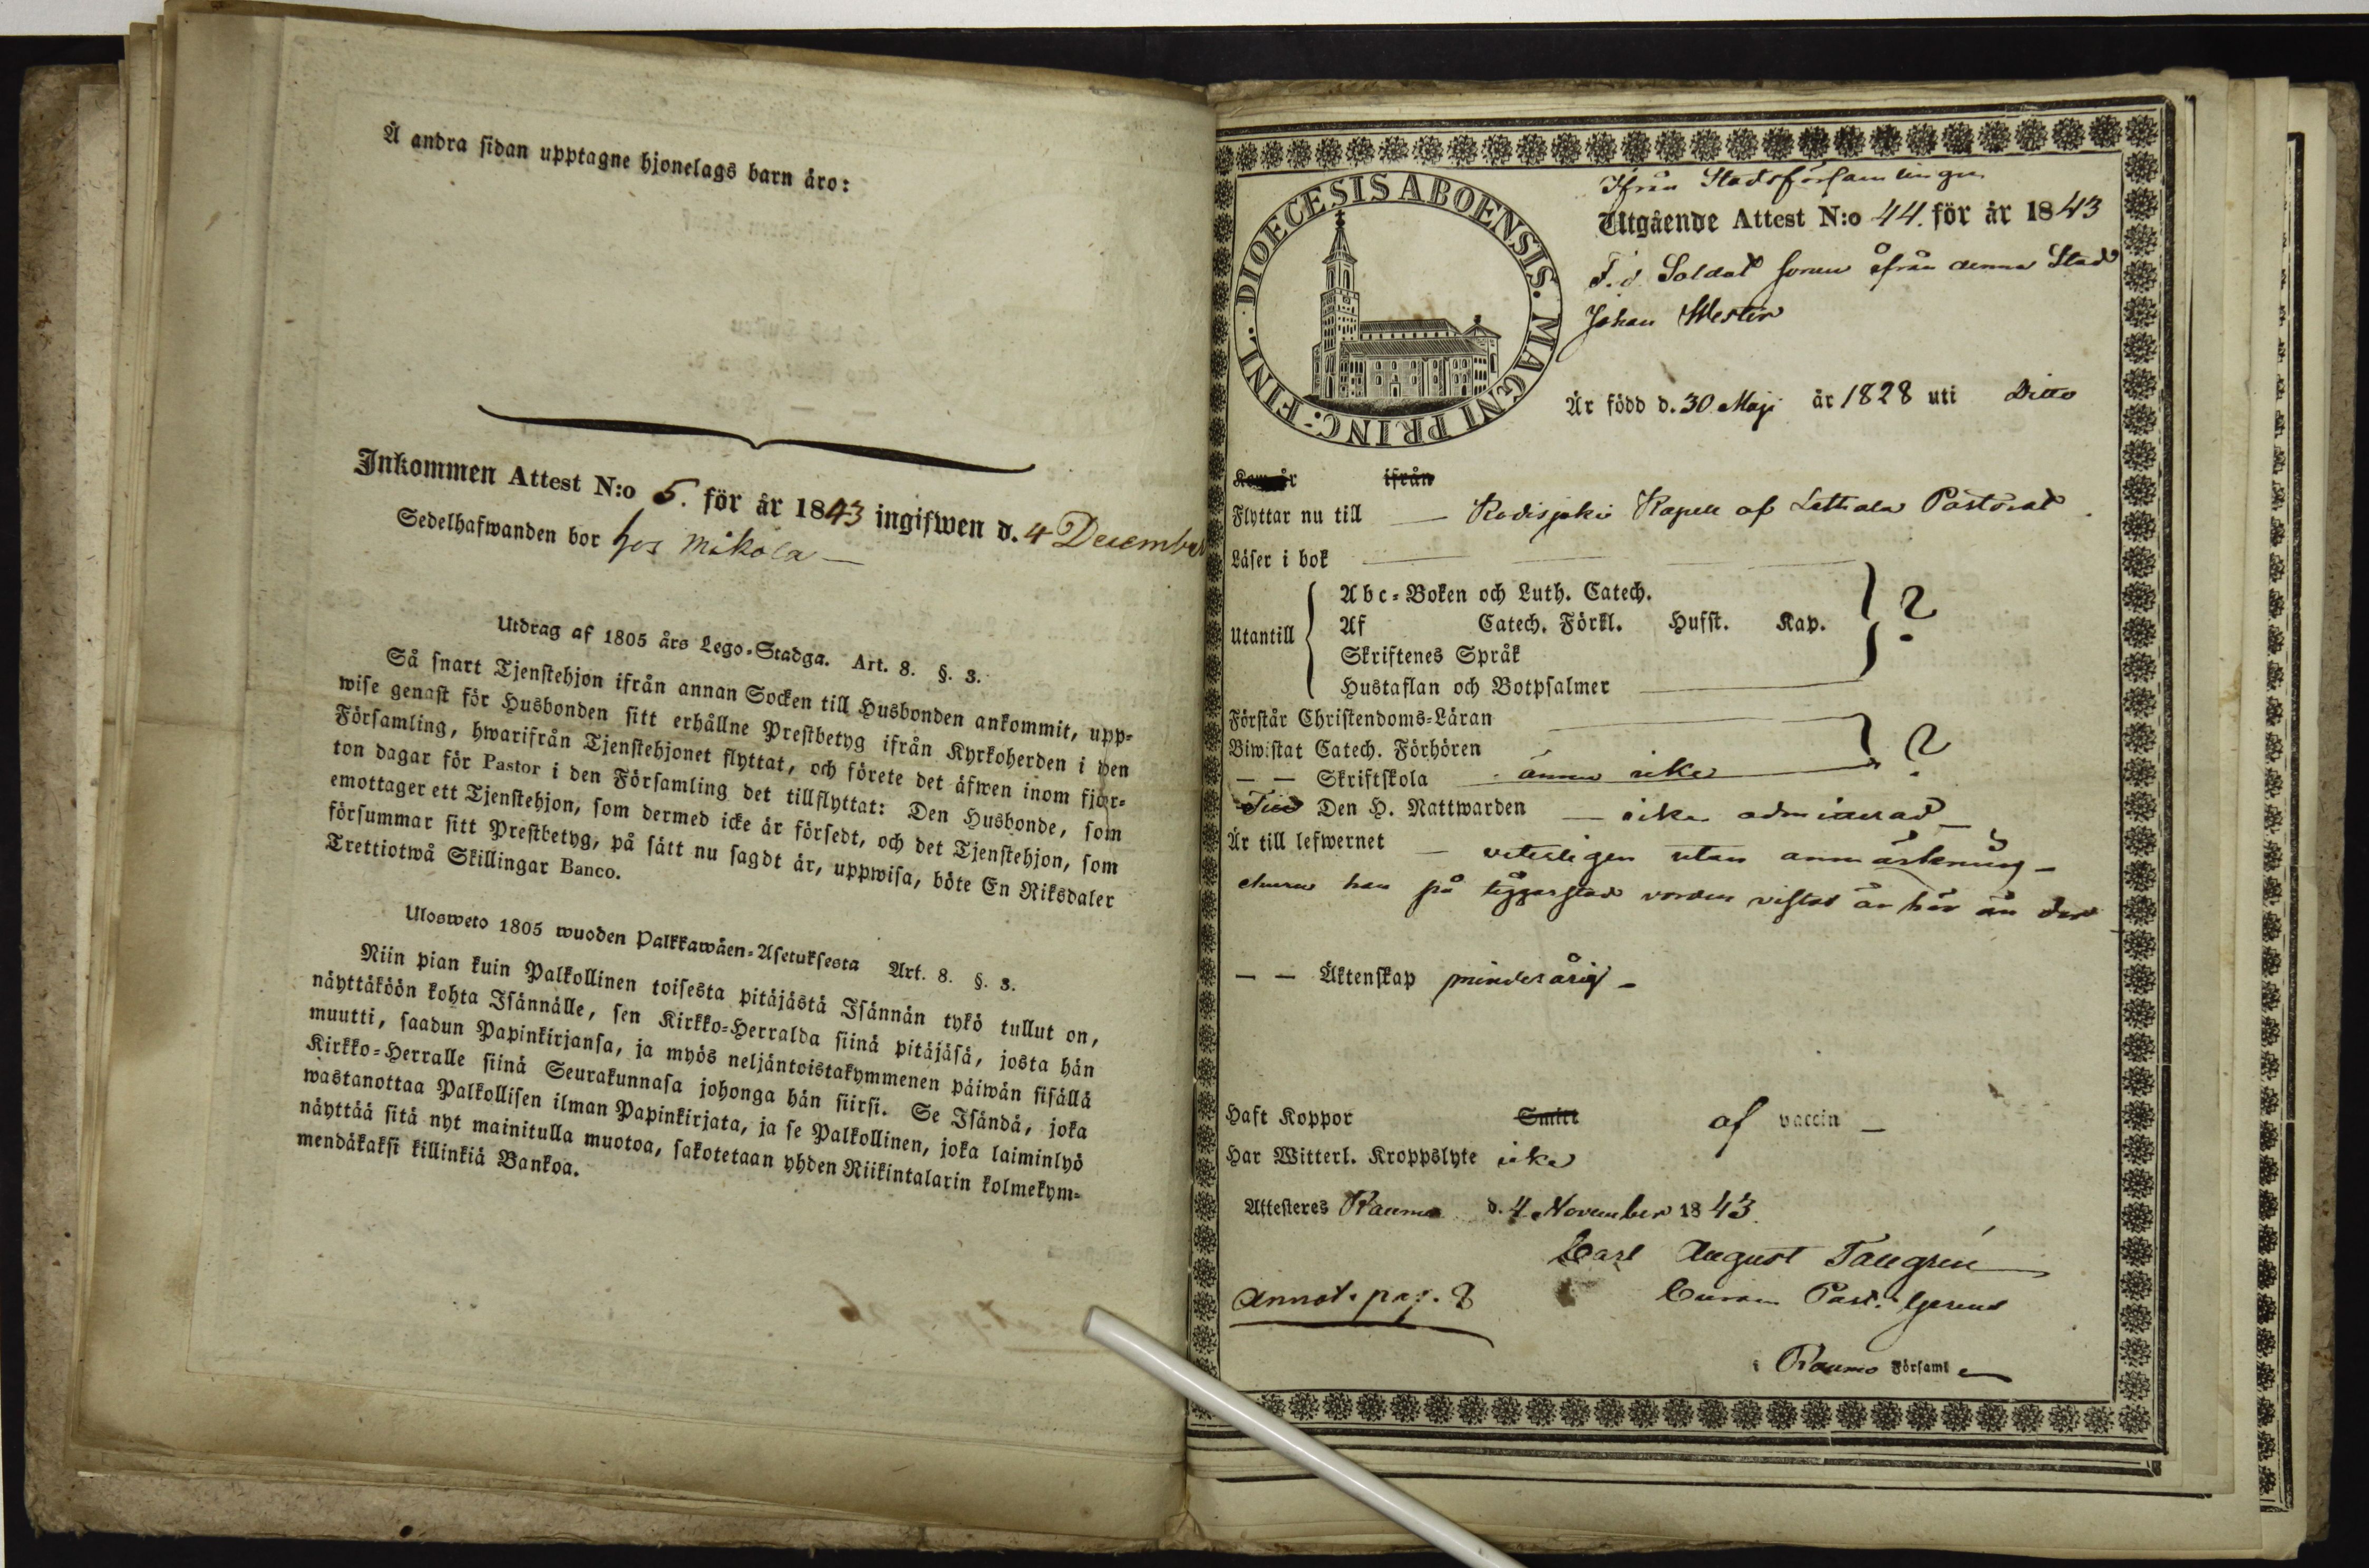 Å andra sidan upptagne hjonelags barn äro:
Inkommen Attest N:o 5. för år 1843 ingifwen d. 4 December
Sedelhafwanden bor hos Mikola —
Utdrag af 1805 års Lego-Stadga. Art. 8. §. 3.
Så snart Tjenstehjon ifrån annan Socken till Husbonden ankommit, upp-
wise genast för Husbonden sitt erhållne Prestbetyg ifrån Kyrkoherden i den
Församling, hwarifrån Tjenstehjonet flyttat, och förete det äfwen inom fjor-
ton dagar för Pastor i den Församling det tillflyttat: Den Husbonde, som
emottager ett Tjenstehjon, som dermed icke är försedt, och det Tjenstehjon, som
försummar sitt Prestbetyg, på sätt nu sagdt är, uppwisa, böte En Riksdaler
Trettiotwå Skillingar Banco.
Ulosweto 1805 wuoden Palkkawäen-Asetuksesta Art. 8. §. 3.
Niin pian kuin Palkollinen toisesta pitäjästä Isännän tykö tullut on,
näyttäköön kohta Isännälle, sen Kirkko-Herralda siinä pitäjäsä, josta hän
muutti, saadun Papinkirjansa, ja myös neljäntoistakymmenen päiwän sisällä
Kirkko-Herralle siinä Seurakunnasa johonga hän siirsi. Se Isändä, joka
wastanottaa Palkollisen ilman Papinkirjata, ja se Palkollinen, joka laiminlyö
näyttää sitä nyt mainitulla muotoa, sakotetaan yhden Riikintalarin kolmekym-
mendäkaksi killinkiä Bankoa.
DIOECESIS ABOENSIS. MAGNI PRINC: FINL.
Ifrån Stadsförsamlingen
Utgående Attest N:o 44. för år 1843
F.d. Soldat sonen ifrån denna Stad
Johan Wester
Är född d. 30 Maji år 1828 uti Ditto
Kom år ifrån
Flyttar nu till — Kodisjoki Kapell af Pastorat.
Läser i bok
Utantill
Abc-Boken och Luth. Catech.
Af Catech. Förkl. Husst. Kap. ?
Skriftenes Språk
Hustaflan och Botpsalmer
Förstår Christendoms-Läran
Biwistat Catech. Förhören ?
— — Skriftskola ännu icke
Till Den H. Nattwarden — icke admitterad —
Är till lefwernet — veterligen utan anmärkning —
han på vistas än här än der
— — Äktenskap minderårig —
Haft Koppor Smitt af vaccin —
Har Witterl. Kroppslyte icke
Attesteres Raumo d. 4 November 1843.
Carl August Tallgren
Annot. pag. 8
Curam Past. Gerens
i Raumo Församl